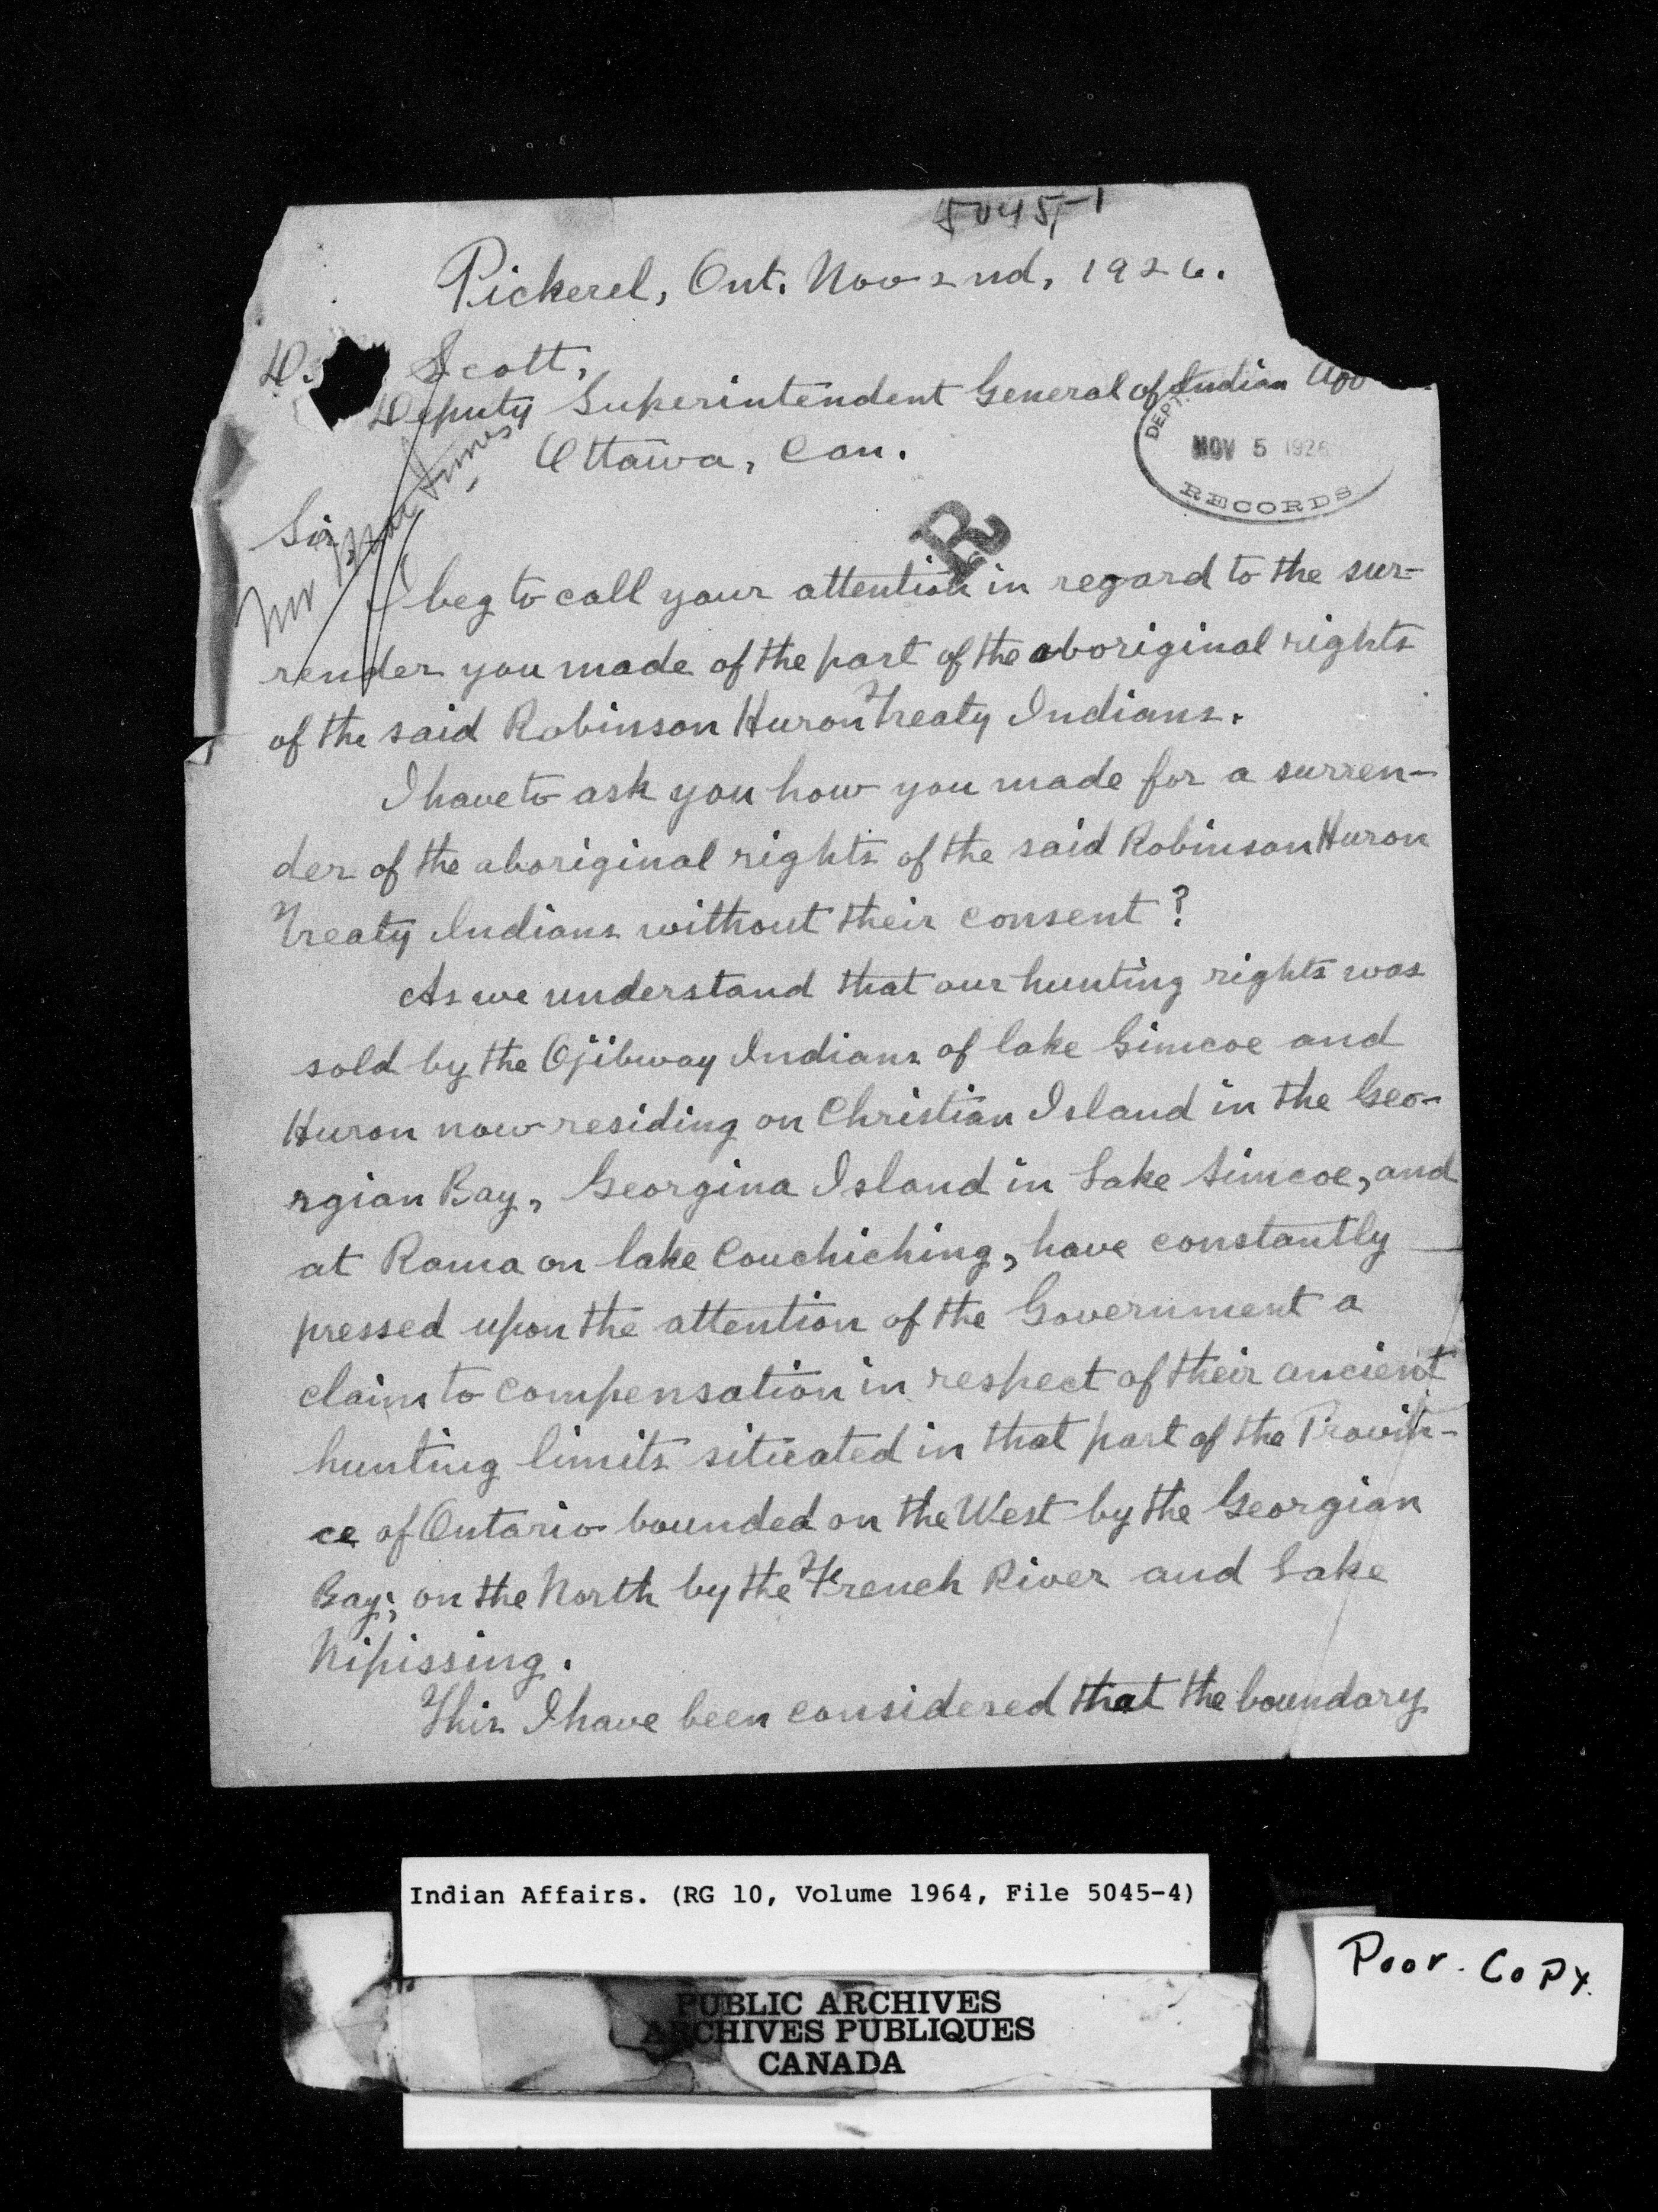 5045-1
Pickerel, Ont. Nov 2nd, 1926.
D. Scott,
Deputy Superintendent General of Indian
Ottawa, Can.
DEPT.
NOV 5 1926
RECORDS
Sir
Mr
R
I beg to call your attention in regard to the sur-
render you made of the part of the aboriginal rights
of the said Robinson Huron Treaty Indians.
I have to ask you how you made for a surren-
der of the aboriginal rights of the said Robinson Huron
Treaty Indians without their consent?
As we understand that our hunting rights was
sold by the Ojibway Indians of lake Simcoe and
Huron now residing on Christian Island in the Geo-
rgian Bay, Georgina Island in Lake Simcoe, and
at Rama on lake Couchiching, have constantly
pressed upon the attention of the Government a
claim to compensation in respect of their ancient
hunting limits situated in that part of the Provin-
ce of Ontario bounded on the West by the Georgian
Bay; on the North by the French River and Lake
Nipissing.
This I have been considered that the boundary
Indian Affairs. (RG 10, Volume 1964, File 5045-4)
PUBLIC ARCHIVES
ARCHIVES PUBLIQUES
CANADA
Poor. Copy.